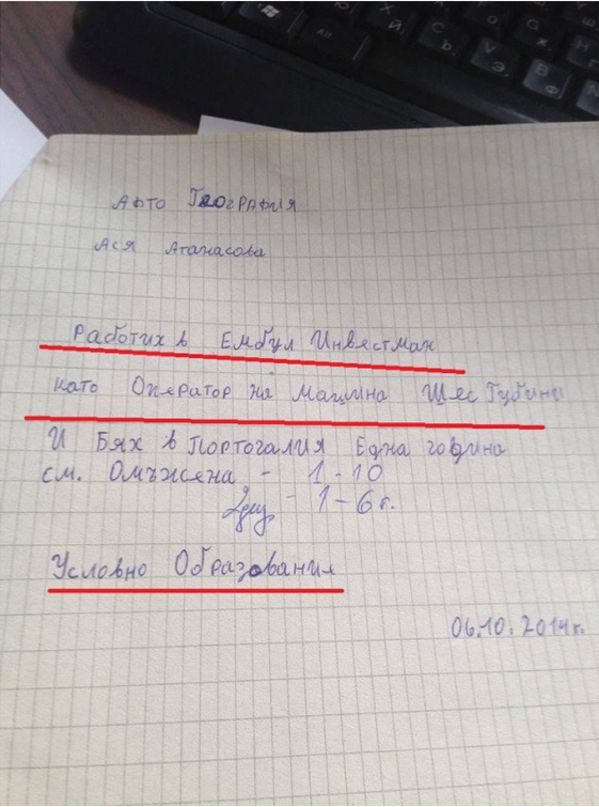 Афто География
Ася Атанасова
Работих в Ембул Инвястман
като Оператор на Машина Шес Губини
И Бях в Портогалия Една година
см. Омъжена - 1-10
2дец - 1-6 г.
Условно Образования
06.10.2014г.